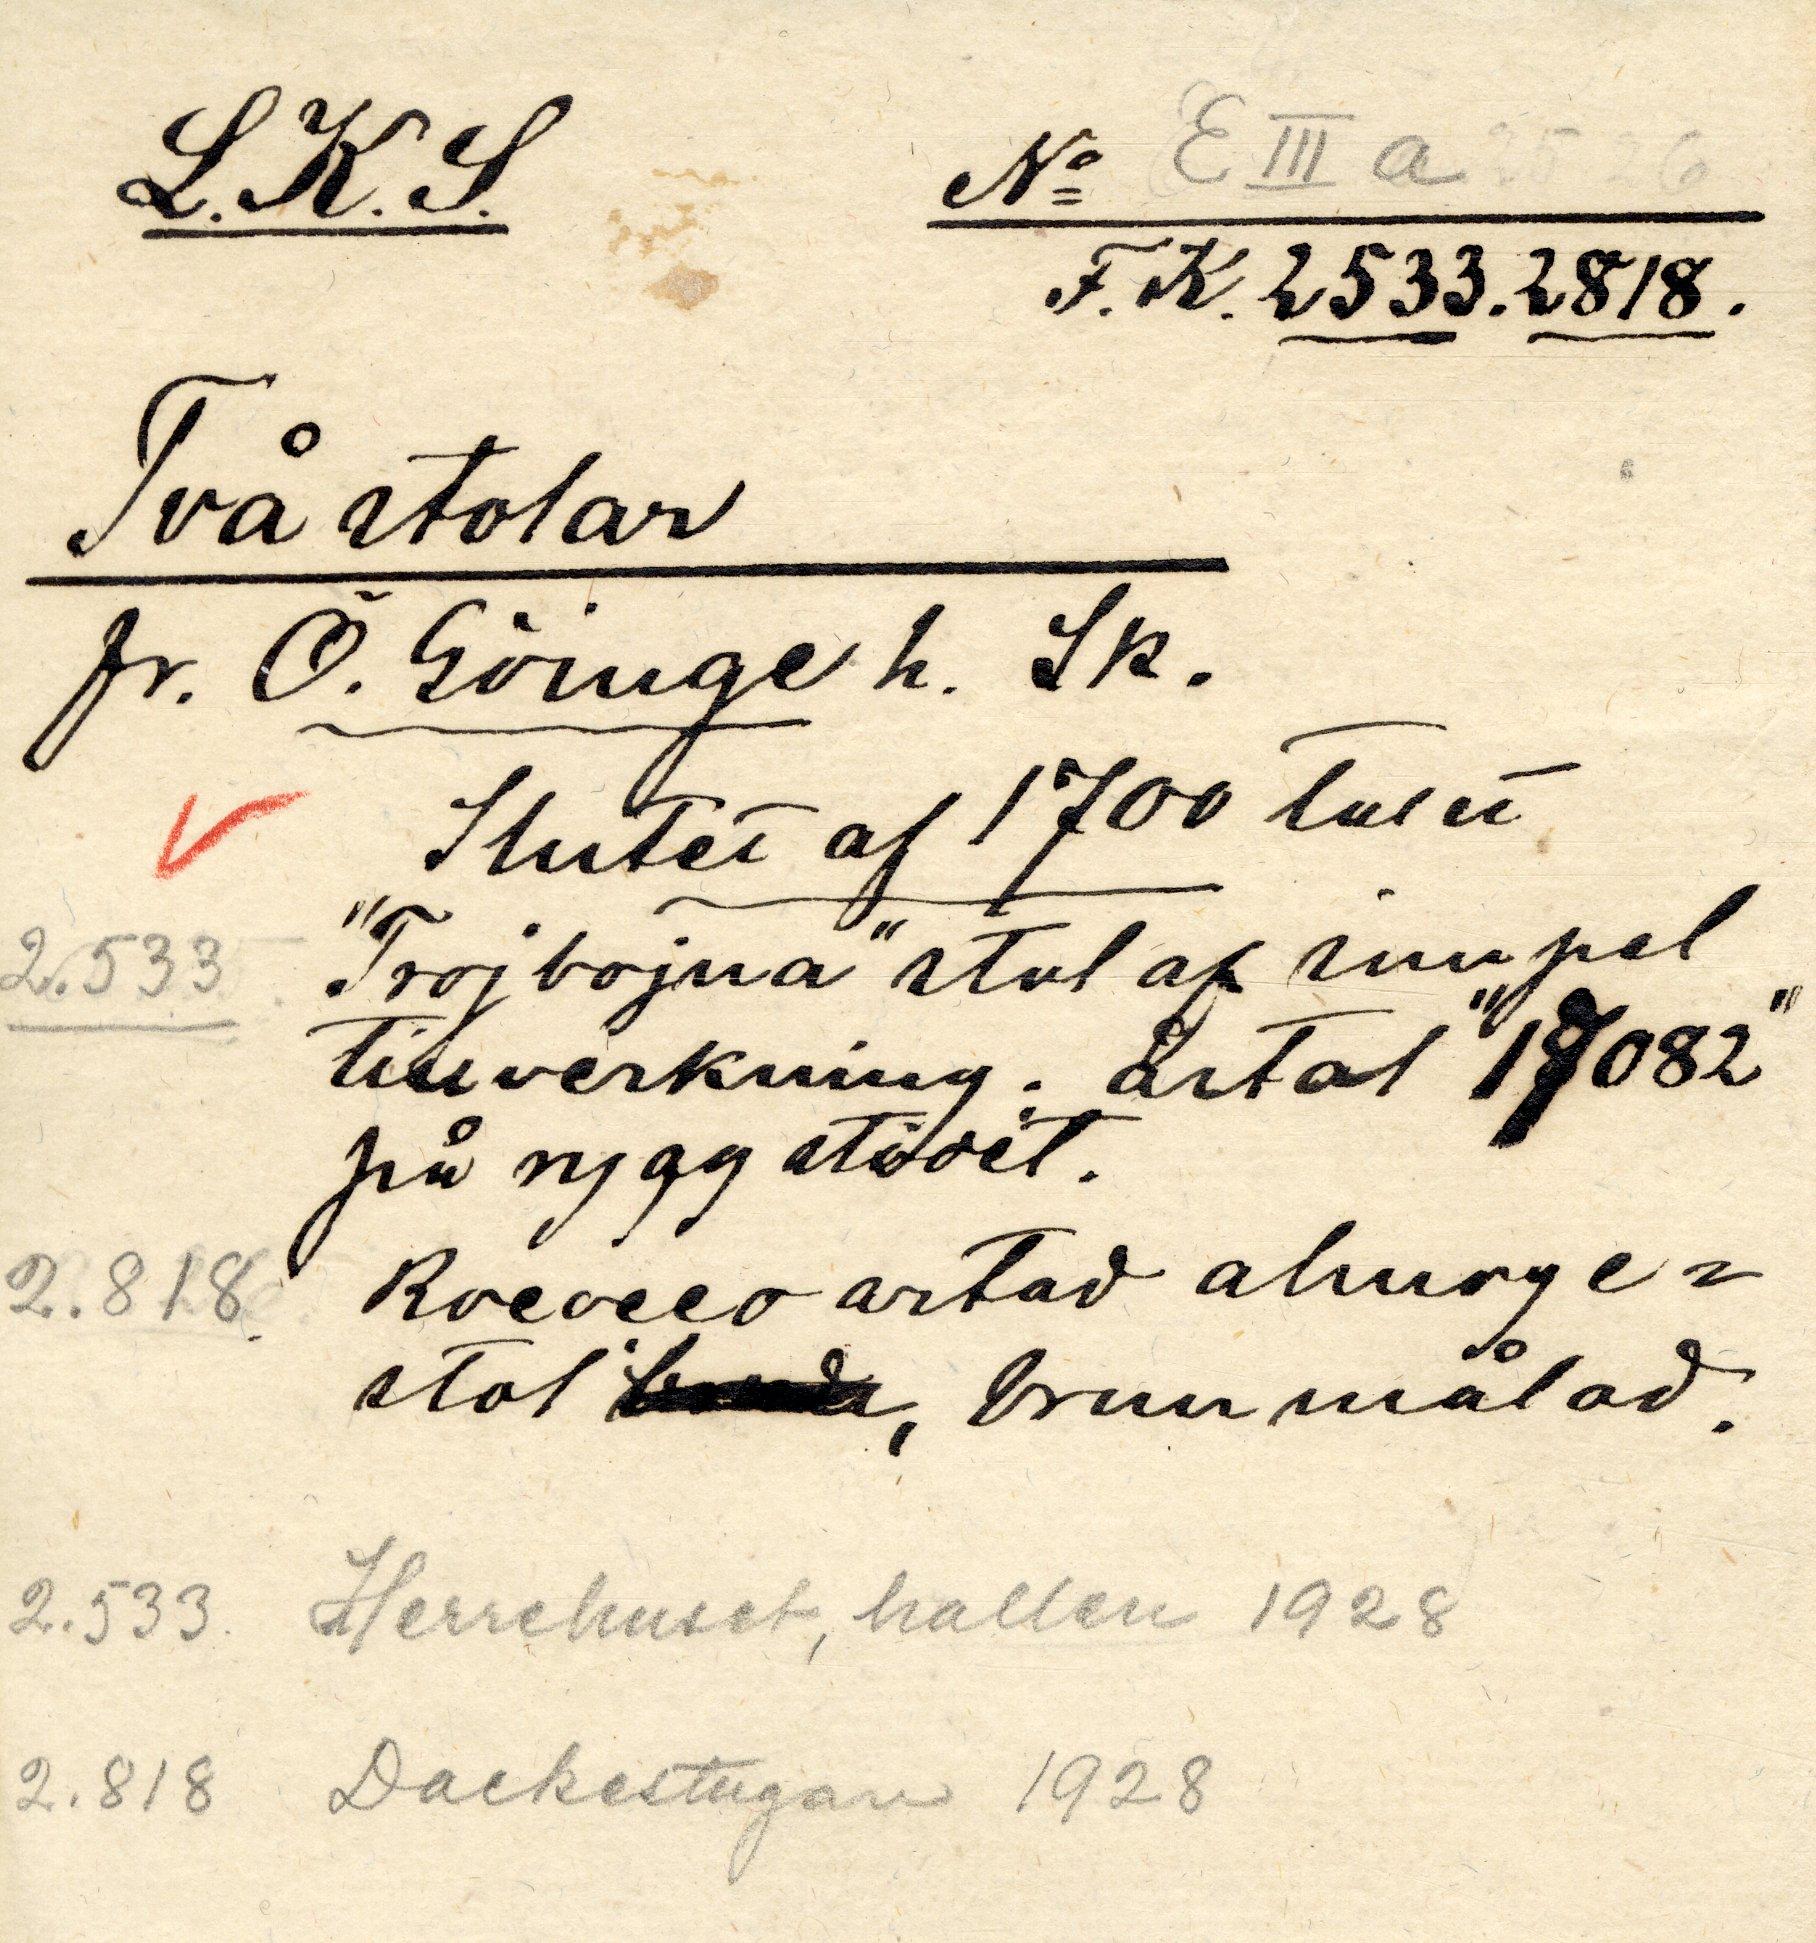 L.K.S.
No E III a
F.K. 2533. 2818.
Två stolar
fr. Ö. Göinge h. Sk.
Slutet af 1700 talet
2.533 "Trojbojna" stol af simpel
tillverkning. årtal
på ryggstödet.
2.818. Rococo artad almoge=
stol, brunmålad.
2.533. Herrehuset, hallen 1928
2.818 Dackestugan 1928